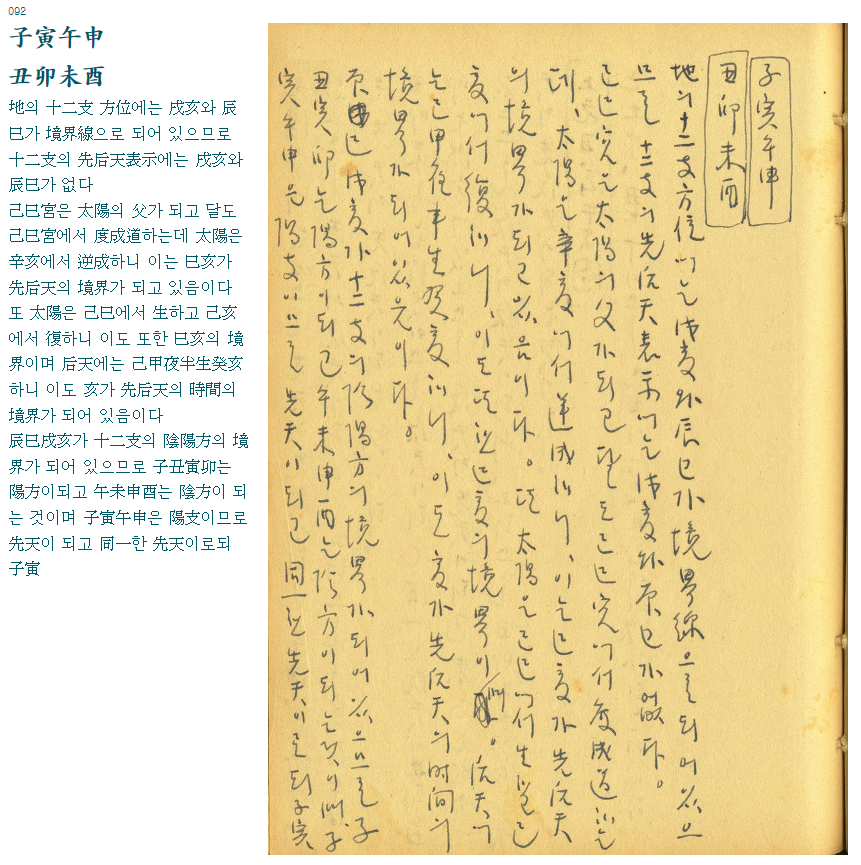 092
子寅午申
丑卯未酉
地의 十二支 方位에는 戌亥와 辰
巳가 境界線으로 되어 있으므로
十二支의 先后天表示에는 戌亥와
辰巳가 없다
己巳宮은 太陽의 父가 되고 달도
己巳宮에서 度成道하는데 太陽은
辛亥에서 逆成하니 이는 巳亥가
先后天의 境界가 되고 있음이다
또 太陽은 己巳에서 生하고 己亥
에서 復하니 이도 또한 巳亥의 境
界이며 后天에는 己甲夜半生癸亥
하니 이도 亥가 先后天의 時間의
境界가 되어 있음이다
辰巳戌亥가 十二支의 陰陽方의 境
界가 되어 있으므로 子丑寅卯는
陽方이되고 午未申酉는 陰方이 되
는 것이며 子寅午申은 陽支이므로
先天이 되고 同一한 先天이로되
子寅
子寅午申
丑卯未酉
地의 十二支 方位에는 戌亥와 辰巳가 境界線으로 되어 있으
므로 十二支의 先后天表示에는 戌亥와 辰巳가 없다。
己巳宮은 太陽의 父가 되고 달도 己巳宮에서 度成道하는
데、太陽은 辛亥에서 逆成하니、이는 巳亥가 先后天
의 境界가 되고 있음이다。또 太陽은 己巳에서 生하고 己
亥에서 復하니、이도 또한 巳亥의 境界이며。后天에
는 己甲夜半生癸亥하니、이도 亥가 先后天의 时间의
境界가 되어 있음이다。
辰巳戌亥가 十二支의 陰陽方의 境界가 되어 있으므로 子
丑寅卯는 陽方이되고 午未申酉는 陰方이 되는 것이며、子
寅午申은 陽支이므로 先天이 되고 同一한 先天이로되 子寅